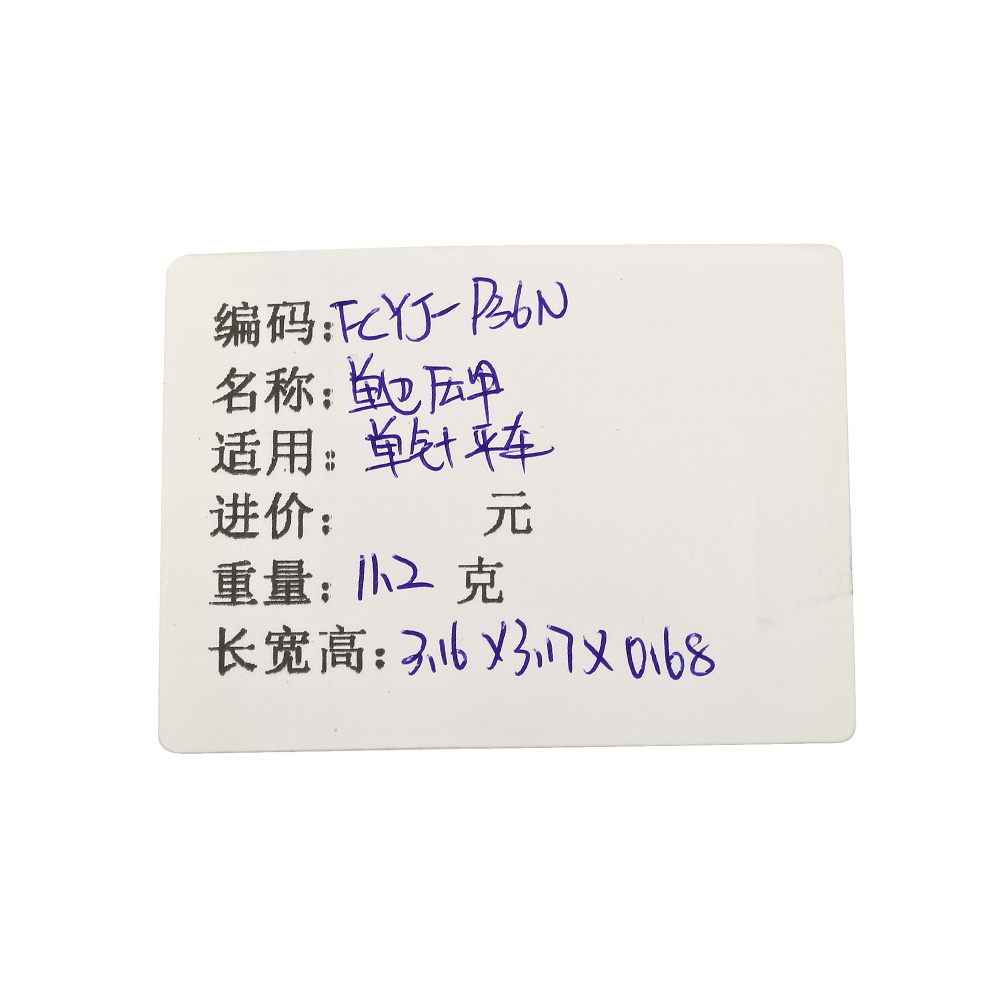 编码:FCYJ-P36N
名称:单边压甲
适用:单针平车
进价: 元
重量:11.2 克
长宽高:3.16×3.17×0.68